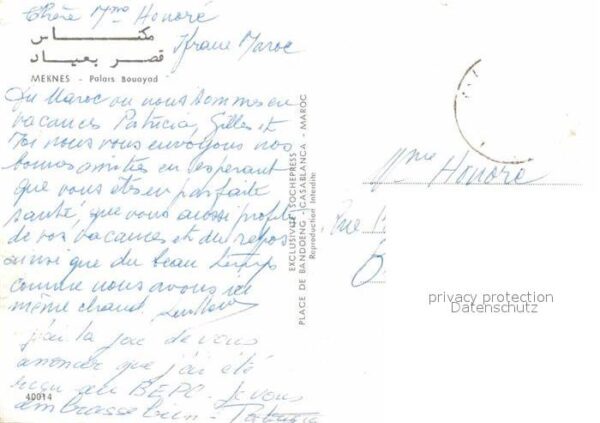 Chère Mme Honoré
Ifrane Maroc
مكناس
قصر بعياد
MEKNES - Palais Bouayad
Du Maroc où nous sommes en
vacances Patricia, Gilles et
moi nous vous envoyons nos
bonnes amitiés en espérant
que vous êtes en parfaite
santé, que vous aussi profitez
de vos vacances et du repos
ainsi que du beau temps
comme nous avons ici
même chaud.
j'ai la joie de vous
annoncer que j'ai été
reçu au BEPC. Je vous
embrasse bien - Patricia
40014
EXCLUSIVITÉ SOCHEPRESS
PLACE DE BANDOENG - CASABLANCA - MAROC
Reproduction Interdite
Mme Honoré
Rue
privacy protection
Datenschutz